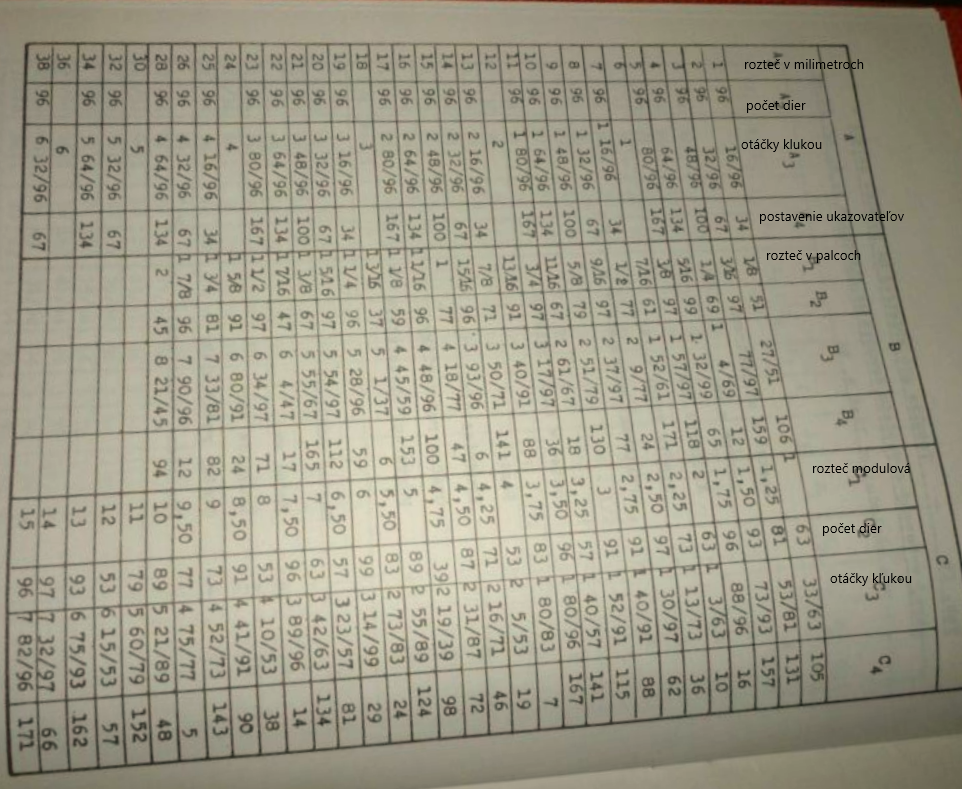 rozteč v milimetroch
počet dier
otáčky klukou
postavenie ukazovateľov
rozteč v palcoch
rozteč modulová
počet dier
otáčky kľukou
A B C
A3 B2 B3 B4 C3 C4
1 96 16/96 34 1/8 51 27/51 106 1 63 33/63 105
2 96 32/96 67 3/16 97 77/97 159 1,25 81 53/81 131
3 96 48/96 100 1/4 69 1 4/69 12 1,50 93 73/93 157
4 96 64/96 134 5/16 99 1 32/99 65 1,75 96 88/96 16
5 96 80/96 167 3/8 97 1 57/97 118 2 63 1 3/63 10
6 1 7/16 61 1 52/61 171 2,25 73 1 13/73 36
7 96 1 16/96 34 1/2 77 2 9/77 24 2,50 97 1 30/97 62
8 96 1 32/96 67 9/16 97 2 37/97 77 2,75 91 1 40/91 88
9 96 1 48/96 100 5/8 79 2 51/79 130 3 91 1 52/91 115
10 96 1 64/96 134 11/16 67 2 61/67 18 3,25 57 1 40/57 141
11 96 1 80/96 167 3/4 97 3 17/97 36 3,50 96 1 80/96 167
12 2 13/16 91 3 40/91 88 3,75 83 1 80/83 7
13 96 2 16/96 34 7/8 71 3 50/71 141 4 53 2 5/53 19
14 96 2 32/96 67 15/16 96 3 93/96 6 4,25 71 2 16/71 46
15 96 2 48/96 100 1 77 4 18/77 47 4,50 87 2 31/87 72
16 96 2 64/96 134 1 1/16 96 4 48/96 100 4,75 39 2 19/39 98
17 96 2 80/96 167 1 1/8 59 4 45/59 153 5 89 2 55/89 124
18 3 1 3/16 37 5 1/37 6 5,50 83 2 73/83 24
19 96 3 16/96 34 1 1/4 96 5 28/96 59 6 99 3 14/99 29
20 96 3 32/96 67 1 5/16 97 5 54/97 112 6,50 57 3 23/57 81
21 96 3 48/96 100 1 3/8 67 5 55/67 165 7 63 3 42/63 134
22 96 3 64/96 134 1 7/16 47 6 4/47 17 7,50 96 3 89/96 14
23 96 3 80/96 167 1 1/2 97 6 34/97 71 8 53 4 10/53 38
24 4 1 5/8 91 6 80/91 24 8,50 91 4 41/91 90
25 96 4 16/96 34 1 3/4 81 7 33/81 82 9 73 4 52/73 143
26 96 4 32/96 67 1 7/8 96 7 90/96 12 9,50 77 4 75/77 5
28 96 4 64/96 134 2 45 8 21/45 94 10 89 5 21/89 48
30 5 11 79 5 60/79 152
32 96 5 32/96 67 12 53 6 15/53 57
34 96 5 64/96 134 13 93 6 75/93 162
36 6 14 97 7 32/97 66
38 96 6 32/96 67 15 96 7 82/96 171